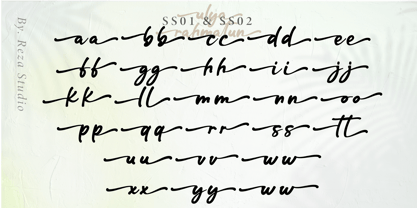 SS01 & SS02
ulya
rahmatun
By. Reza Studio
aa bb cc dd ee
ff gg hh ii jj
kk ll mm nn oo
pp qq rr ss tt
uu vv ww
xx yy ww